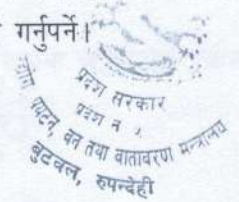 गर्नुपर्ने।
प्रदेश सरकार
प्रदेश नं.
पर्यटन, वन तथा वातावरण मन्त्रालय
बुटवल, रुपन्देही